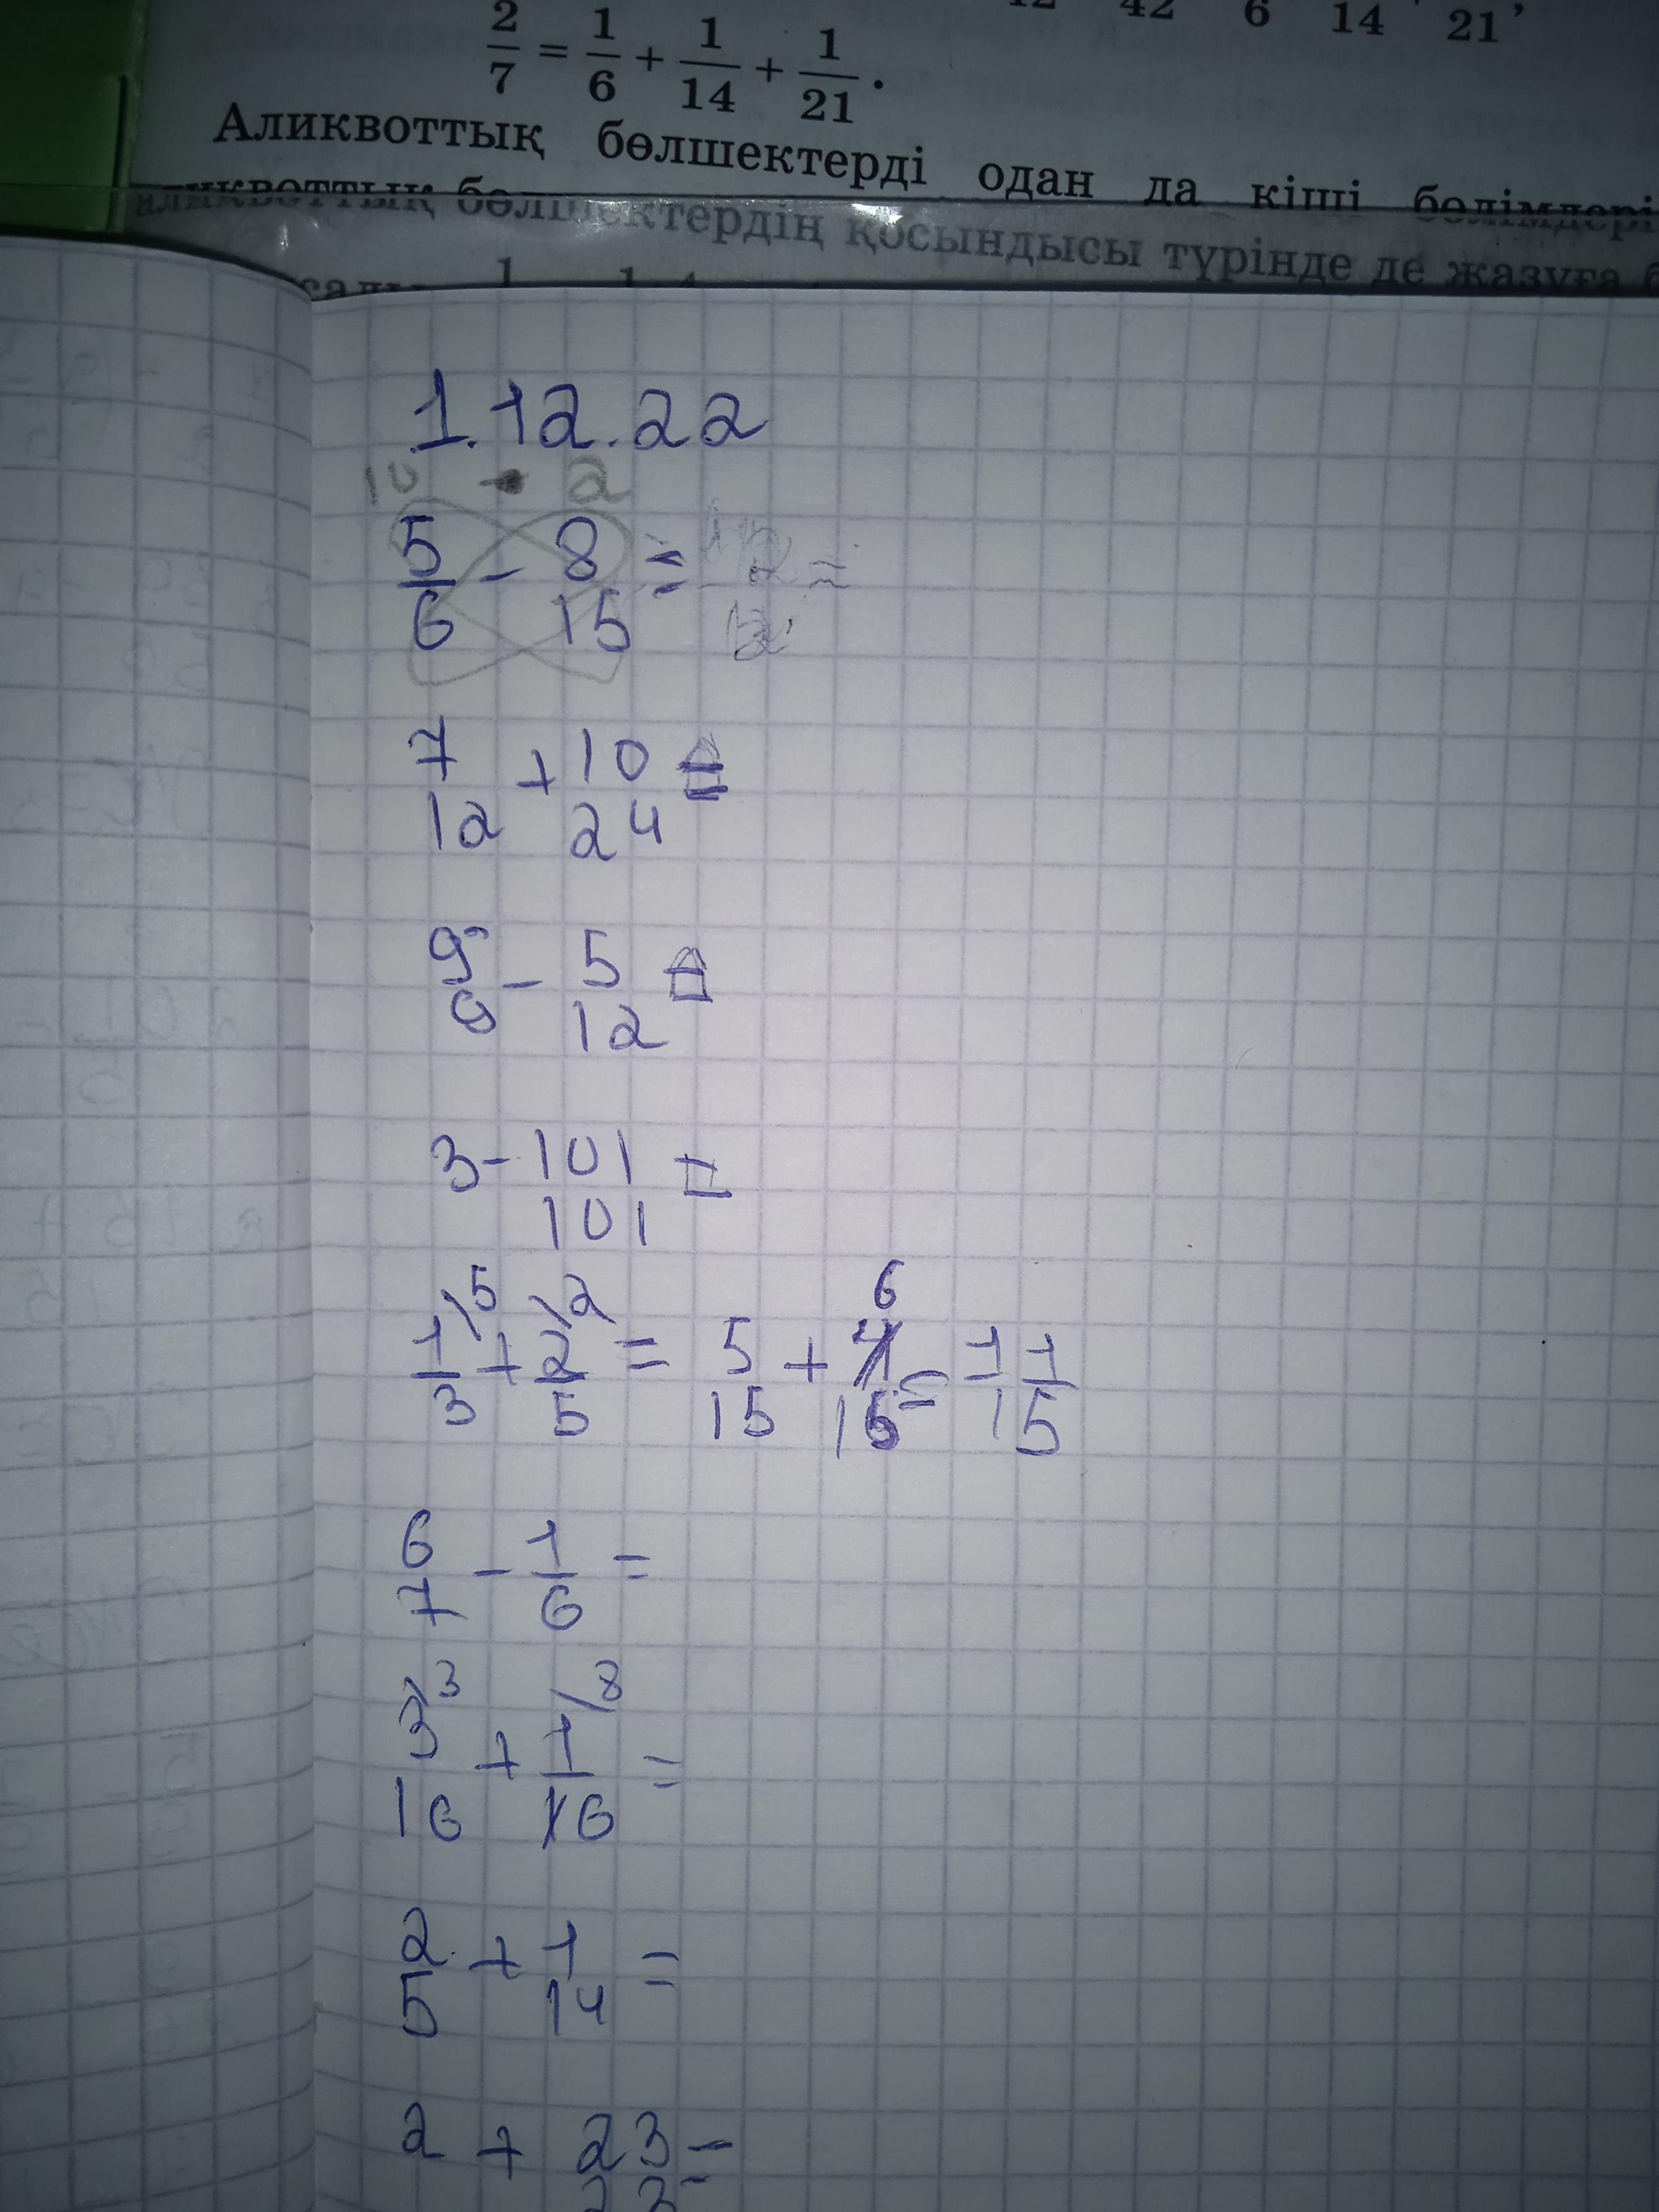 42 6 14 21 ,
2/7 = 1/6 + 1/14 + 1/21 .
Аликвоттық бөлшектерді одан да кіші бөлімдері
аликвоттық бөлшектердің қосындысы түрінде де жазуға
1.12.22
10 - 2
5/6 - 8/15 =
7/12 + 10/24 =
5/12 =
3 - 101/101 =
5 2 6
1/3 + 2/5 = 5/15 + 4/15 = 11/15
6/7 - 1/6 =
3 8
3/16 + 1/16 =
2/5 + 1/14 =
2 + 23